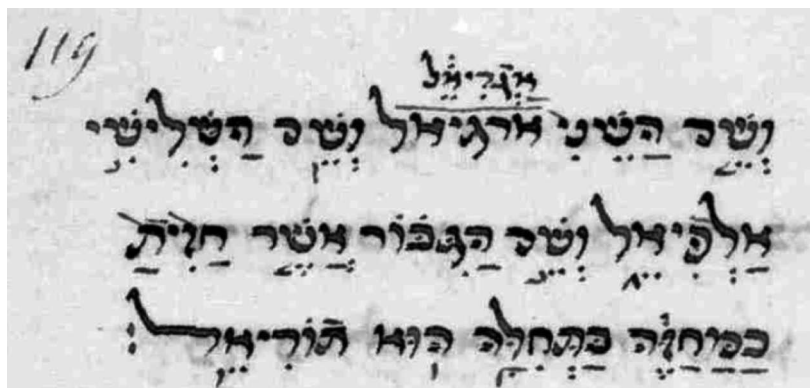 119
אגריאל
וְשֵׁם הַשֵּׁנִי ארגיאל וְשֵׁם הַשְּׁלִישִׁי
אַלְפִּיאֵל וְשֵׁם הַגִּבּוֹר אֲשֶׁר חָזִיתָ
בַּמַּחֲזֶה בַּתְּחִלָּה הוּא תּוֹרִיאֵל׃